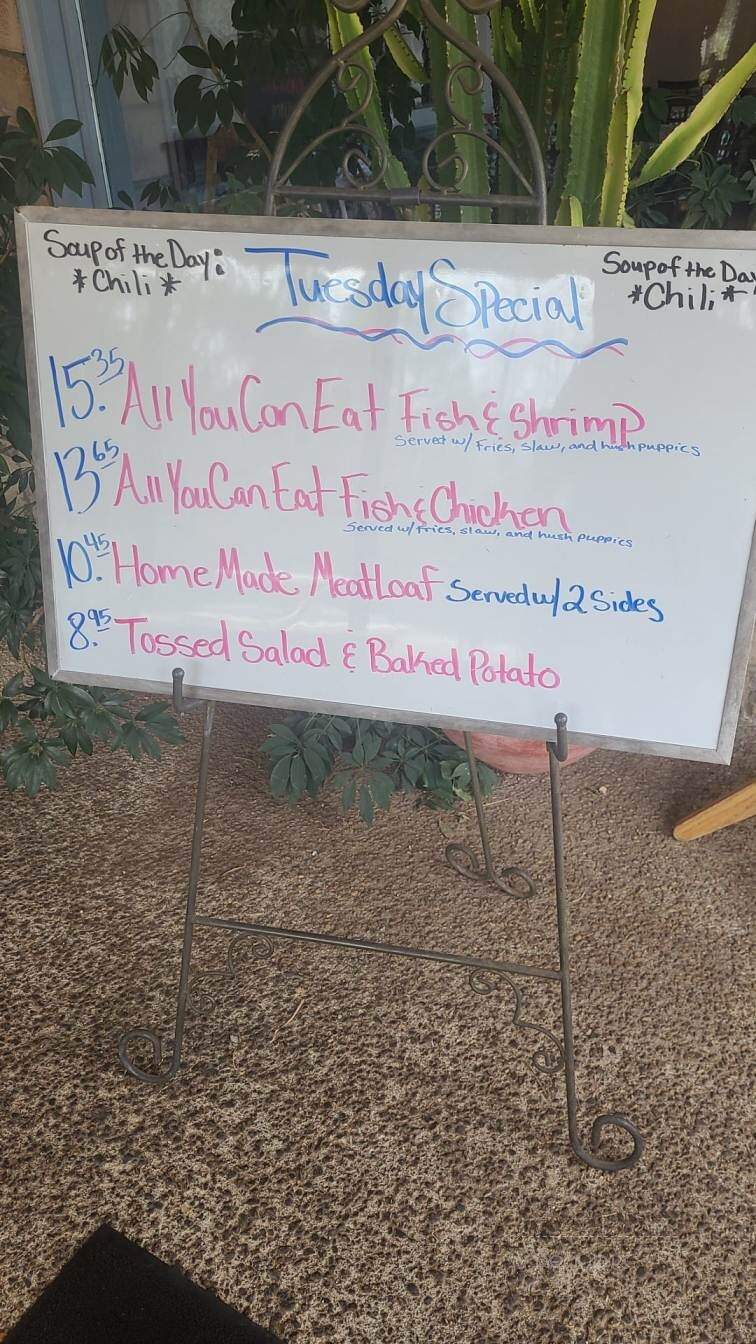 Soup of the Day:
*Chili*
Tuesday Special
Soup of the Day
*Chili*
15.35 All You Can Eat Fish & Shrimp
Served w/ Fries, slaw, and hushpuppies
13.65 All You Can Eat Fish & Chicken
Served w/ fries, slaw, and hush puppies
10.45 Home Made MeatLoaf Served w/ 2 Sides
8.95 Tossed Salad & Baked Potato